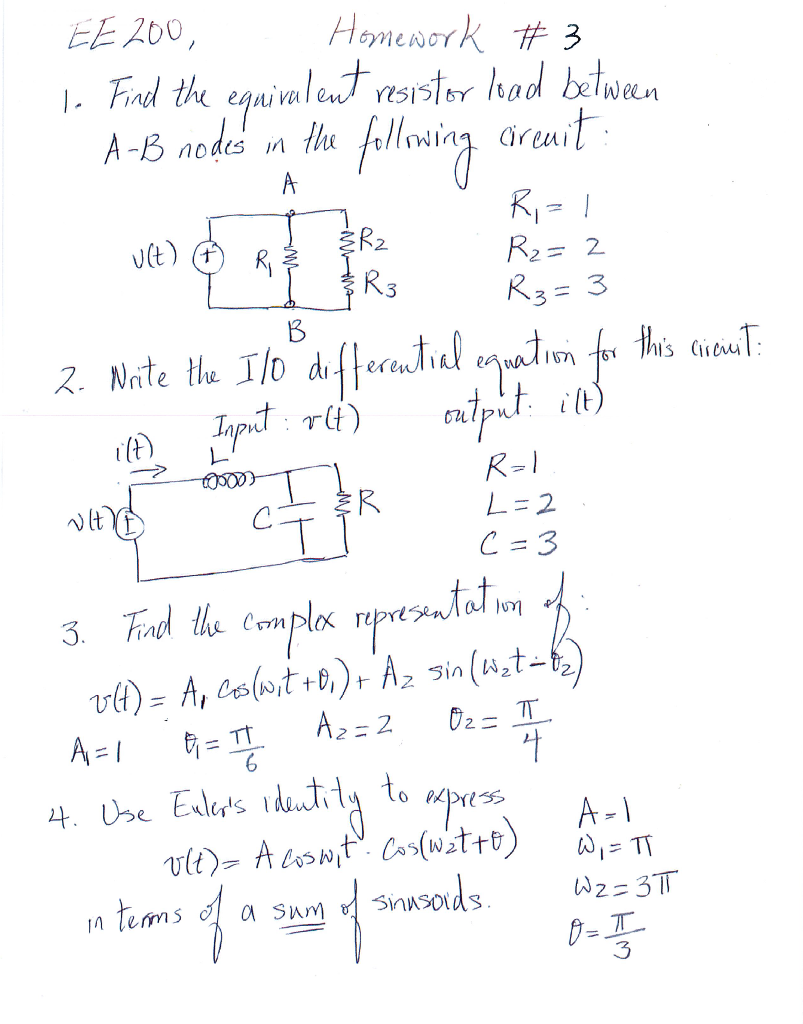 EE 200, Homework # 3
1. Find the equivalent resistor load between
A-B nodes in the following circuit:
A
R₁ = 1
v(t) + R₁ R₂
R₂ = 2
R₃
R₃ = 3
B
2. Write the I/O differential equation for this circuit:
Input: v(t) output: i(t)
i(t) L
R=1
v(t) ± C R
L=2
C=3
3. Find the complex representation of:
v(t) = A₁ Cos(ω₁t+θ₁) + A₂ sin(ω₂t-θ₂)
A₁=1 θ₁=π/6 A₂=2 θ₂=π/4
4. Use Euler's identity to express
A=1
v(t) = A cosω₁t · Cos(ω₂t+θ)
ω₁=π
ω₂=3π
in terms of a sum of sinusoids.
θ=π/3